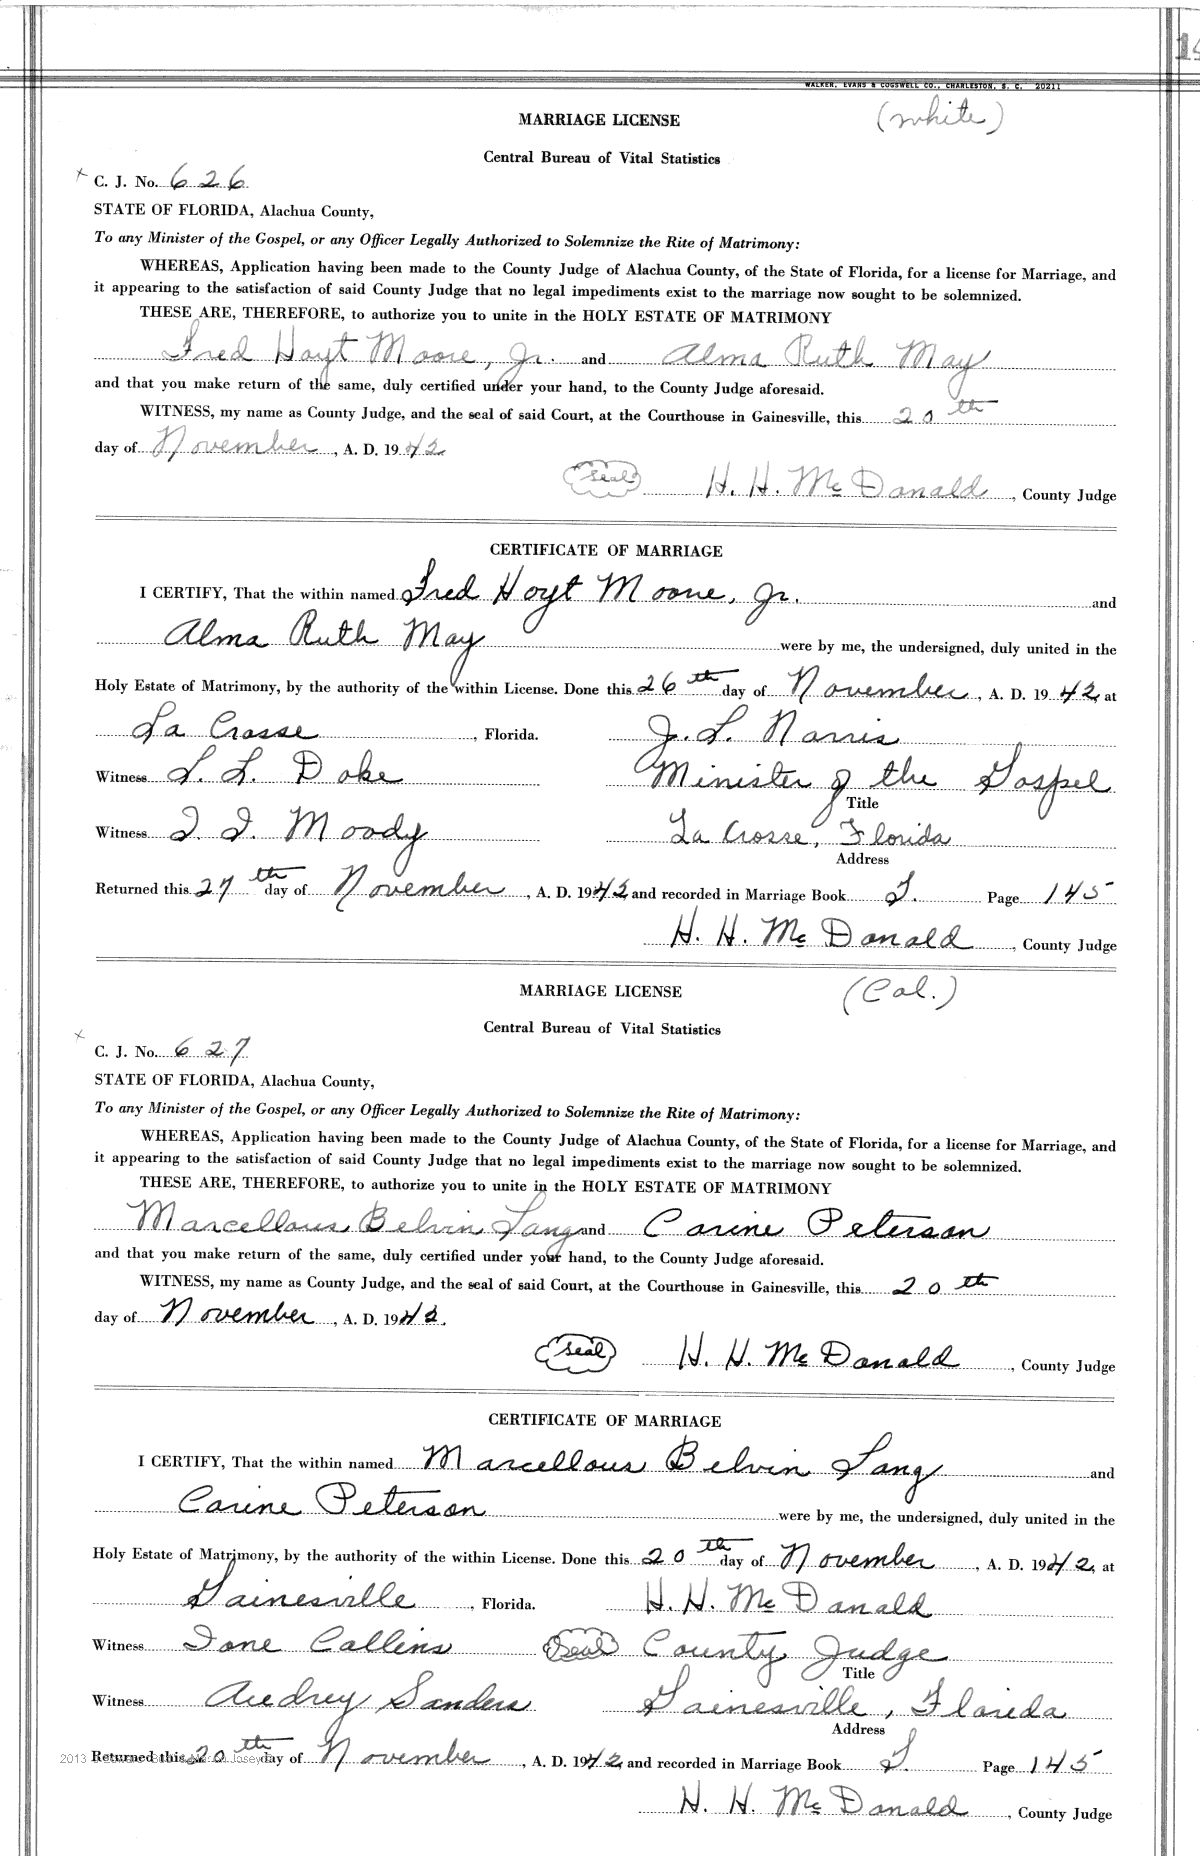 14
WALKER, EVANS & COGSWELL CO., CHARLESTON, S. C. 20211
MARRIAGE LICENSE (white)
Central Bureau of Vital Statistics
x C. J. No. 626
STATE OF FLORIDA, Alachua County,
To any Minister of the Gospel, or any Officer Legally Authorized to Solemnize the Rite of Matrimony:
WHEREAS, Application having been made to the County Judge of Alachua County, of the State of Florida, for a license for Marriage, and
it appearing to the satisfaction of said County Judge that no legal impediments exist to the marriage now sought to be solemnized.
THESE ARE, THEREFORE, to authorize you to unite in the HOLY ESTATE OF MATRIMONY
Fred Hoyt Moore, Jr. and Alma Ruth May
and that you make return of the same, duly certified under your hand, to the County Judge aforesaid.
WITNESS, my name as County Judge, and the seal of said Court, at the Courthouse in Gainesville, this 20th
day of November, A. D. 1942
Seal H. H. McDonald, County Judge
CERTIFICATE OF MARRIAGE
I CERTIFY, That the within named Fred Hoyt Moore, Jr. and
Alma Ruth May were by me, the undersigned, duly united in the
Holy Estate of Matrimony, by the authority of the within License. Done this 26th day of November, A. D. 1942, at
La Crosse, Florida. J. L. Norris
Witness L. L. Doke Minister of the Gospel
Title
Witness I. I. Moody La Crosse, Florida
Address
Returned this 27th day of November, A. D. 1942, and recorded in Marriage Book Page 145
H. H. McDonald, County Judge
MARRIAGE LICENSE (Col.)
Central Bureau of Vital Statistics
x C. J. No. 627
STATE OF FLORIDA, Alachua County,
To any Minister of the Gospel, or any Officer Legally Authorized to Solemnize the Rite of Matrimony:
WHEREAS, Application having been made to the County Judge of Alachua County, of the State of Florida, for a license for Marriage, and
it appearing to the satisfaction of said County Judge that no legal impediments exist to the marriage now sought to be solemnized.
THESE ARE, THEREFORE, to authorize you to unite in the HOLY ESTATE OF MATRIMONY
Marcellous Belvin Lang and Corine Peterson
and that you make return of the same, duly certified under your hand, to the County Judge aforesaid.
WITNESS, my name as County Judge, and the seal of said Court, at the Courthouse in Gainesville, this 20th
day of November, A. D. 1942.
Seal H. H. McDonald, County Judge
CERTIFICATE OF MARRIAGE
I CERTIFY, That the within named Marcellous Belvin Lang and
Corine Peterson were by me, the undersigned, duly united in the
Holy Estate of Matrimony, by the authority of the within License. Done this 20th day of November, A. D. 1942, at
Gainesville, Florida. H. H. McDonald
Witness Ione Collins Seal County Judge
Title
Witness Audrey Sanders Gainesville, Florida
Address
Returned this 20th day of November, A. D. 1942, and recorded in Marriage Book Page 145
H. H. McDonald, County Judge